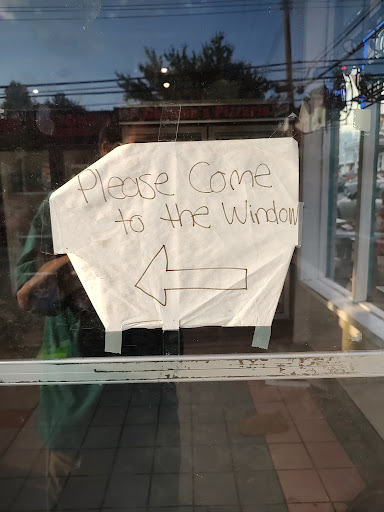 Please Come
to the Window